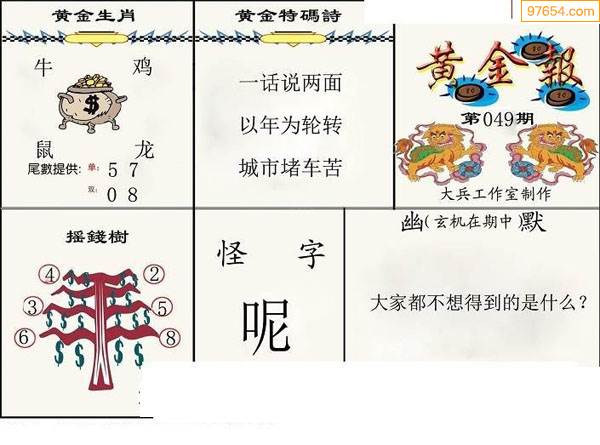 97654.com
黄金生肖
牛 鸡
$
鼠 龙
尾數提供: 单: 5 7
双: 0 8
黄金特碼詩
一话说两面
以年为轮转
城市堵车苦
黄金報
第049期
大兵工作室制作
摇錢樹
④ ②
③ ⑤
⑥ ⑧
怪 字
呢
幽(玄机在期中)默
大家都不想得到的是什么?